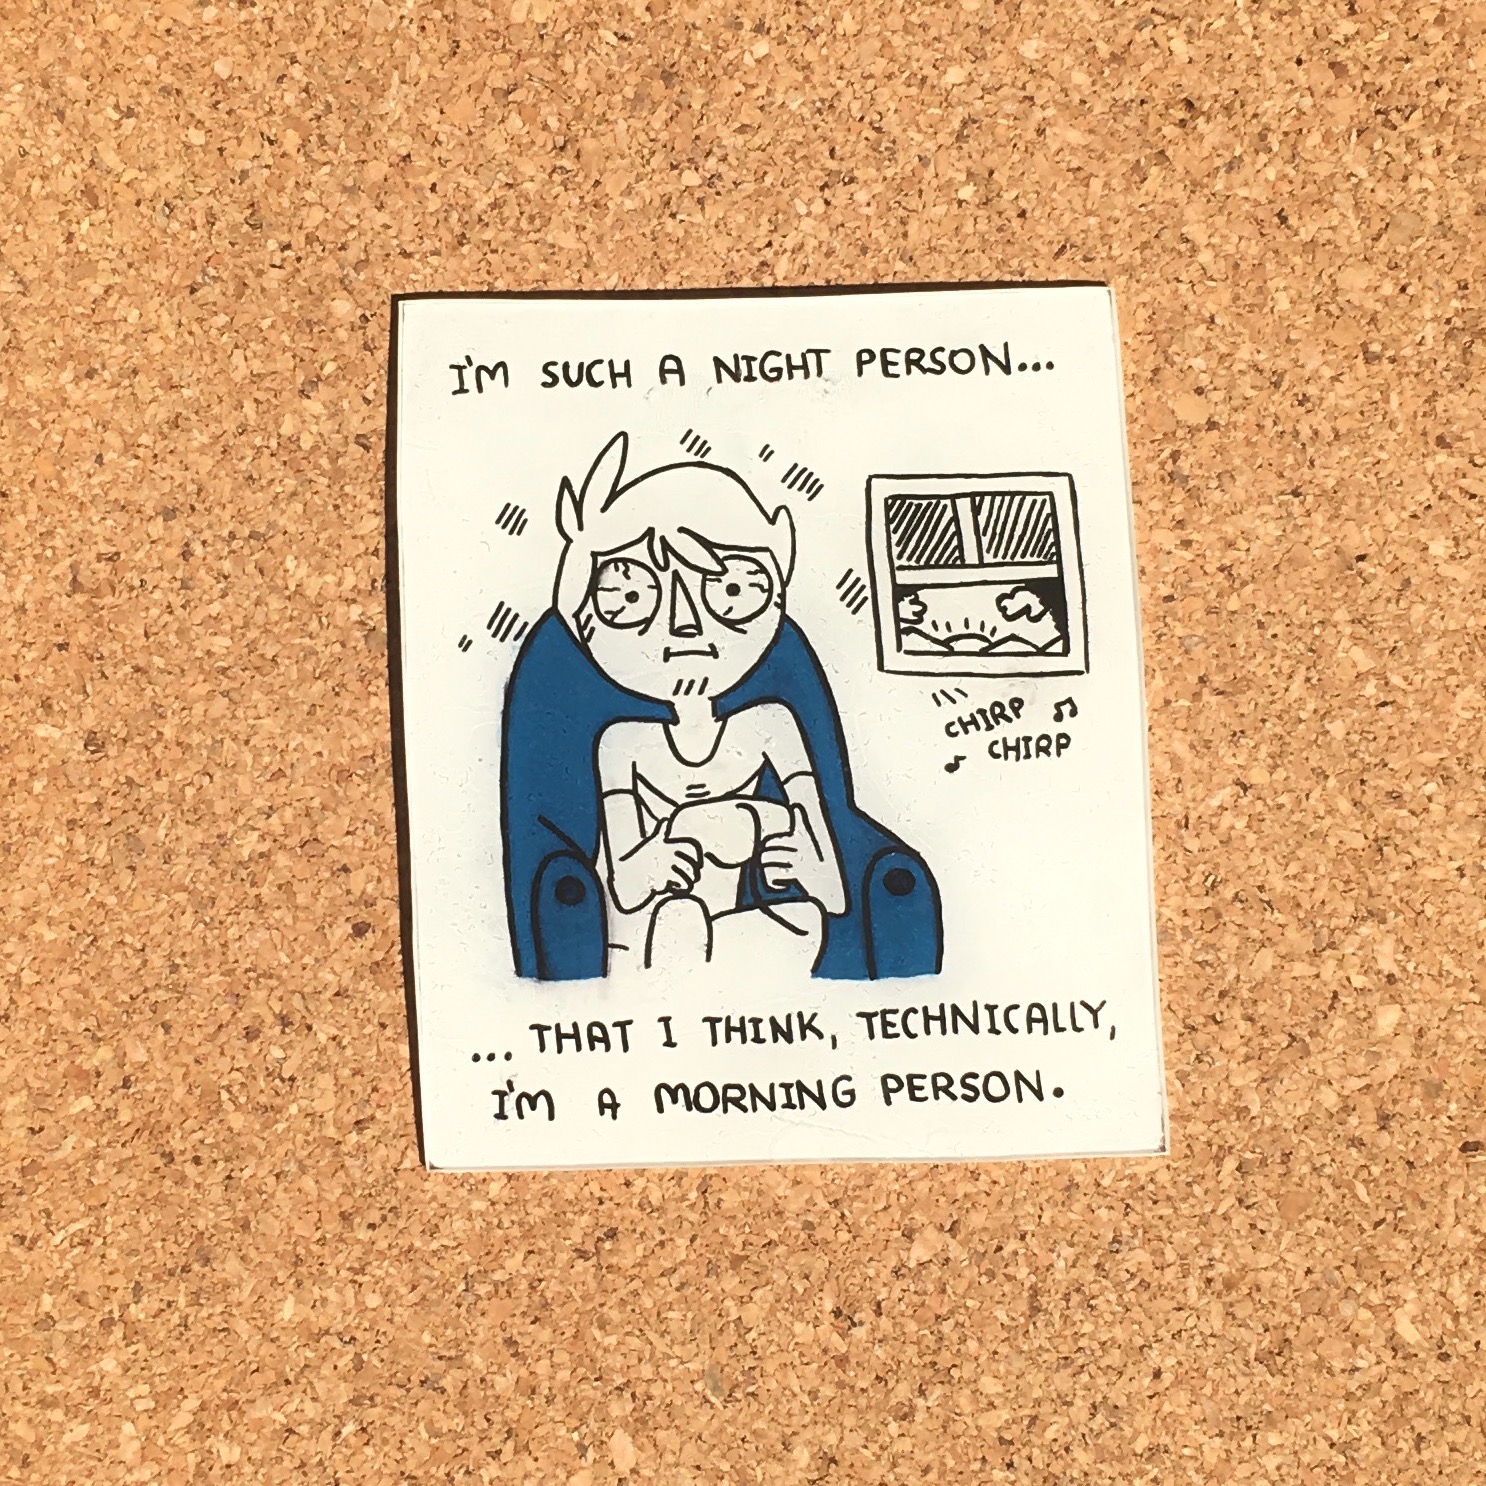 I'M SUCH A NIGHT PERSON...
CHIRP
CHIRP
...THAT I THINK, TECHNICALLY,
I'M A MORNING PERSON.